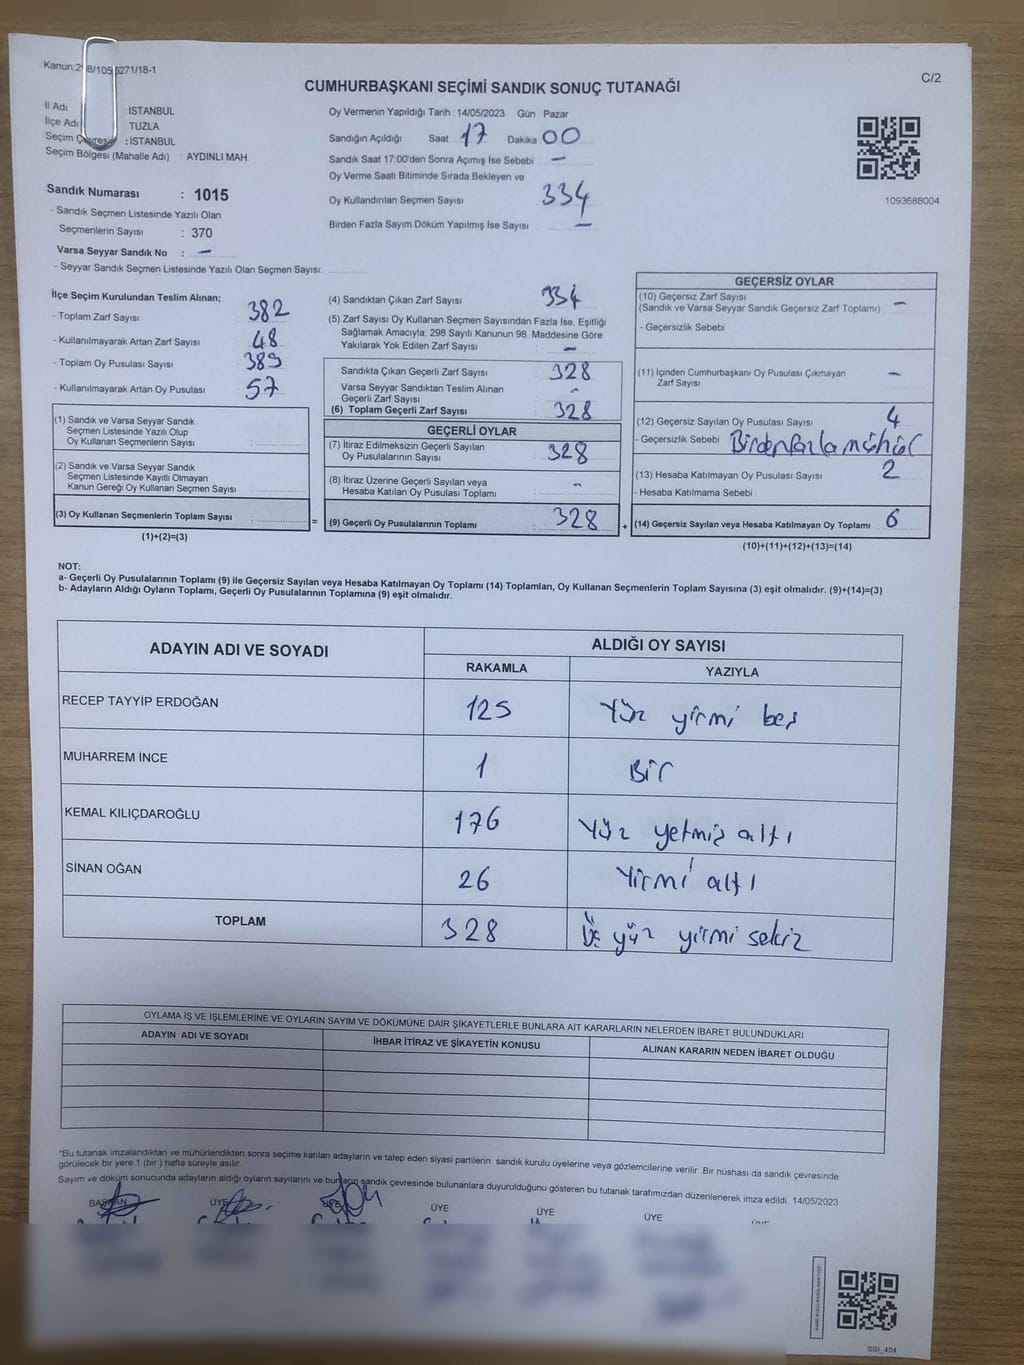 C/2
CUMHURBAŞKANI SEÇİMİ SANDIK SONUÇ TUTANAĞI
İl Adı : İSTANBUL
İlçe Adı TUZLA
Seçim Çevresi : İSTANBUL
Seçim Bölgesi (Mahalle Adı) : AYDINLI MAH.
Sandık Numarası : 1015
- Sandık Seçmen Listesinde Yazılı Olan
Seçmenlerin Sayısı : 370
Varsa Seyyar Sandık No : –
- Seyyar Sandık Seçmen Listesinde Yazılı Olan Seçmen Sayısı:
Oy Vermenin Yapıldığı Tarih : 14/05/2023 Gün Pazar
Sandığın Açıldığı Saat 17 Dakika 00
Sandık Saat 17:00'den Sonra Açımış İse Sebebi : –
Oy Verme Saati Bitiminde Sırada Bekleyen ve
Oy Kullandırılan Seçmen Sayısı 334
Birden Fazla Sayım Döküm Yapılmış İse Sayısı –
1093688004
İlçe Seçim Kurulundan Teslim Alınan;
- Toplam Zarf Sayısı : 382
- Kullanılmayarak Artan Zarf Sayısı : 48
- Toplam Oy Pusulası Sayısı : 389
- Kullanılmayarak Artan Oy Pusulası : 57
(1) Sandık ve Varsa Seyyar Sandık
Seçmen Listesinde Yazılı Olup
Oy Kullanan Seçmenlerin Sayısı :
(2) Sandık ve Varsa Seyyar Sandık
Seçmen Listesinde Kayıtlı Olmayan
Kanun Gereği Oy Kullanan Seçmen Sayısı :
(3) Oy Kullanan Seçmenlerin Toplam Sayısı :
(1)+(2)=(3)
=
(4) Sandıktan Çıkan Zarf Sayısı : 334
(5) Zarf Sayısı Oy Kullanan Seçmen Sayısından Fazla İse, Eşitliği
Sağlamak Amacıyla, 298 Sayılı Kanunun 98. Maddesine Göre
Yakılarak Yok Edilen Zarf Sayısı : –
Sandıkta Çıkan Geçerli Zarf Sayısı : 328
Varsa Seyyar Sandıktan Teslim Alınan
Geçerli Zarf Sayısı : -
(6) Toplam Geçerli Zarf Sayısı : 328
GEÇERLİ OYLAR
(7) İtiraz Edilmeksizin Geçerli Sayılan
Oy Pusulalarının Sayısı : 328
(8) İtiraz Üzerine Geçerli Sayılan veya
Hesaba Katılan Oy Pusulası Toplamı : -
(9) Geçerli Oy Pusulalarının Toplamı : 328
+
GEÇERSİZ OYLAR
(10) Geçersiz Zarf Sayısı
(Sandık ve Varsa Seyyar Sandık Geçersiz Zarf Toplamı) : –
- Geçersizlik Sebebi :
(11) İçinden Cumhurbaşkanı Oy Pusulası Çıkmayan
Zarf Sayısı : –
(12) Geçersiz Sayılan Oy Pusulası Sayısı : 4
- Geçersizlik Sebebi : Birden fazla mühür
(13) Hesaba Katılmayan Oy Pusulası Sayısı : 2
- Hesaba Katılmama Sebebi :
(14) Geçersiz Sayılan veya Hesaba Katılmayan Oy Toplamı : 6
(10)+(11)+(12)+(13)=(14)
NOT:
a- Geçerli Oy Pusulalarının Toplamı (9) ile Geçersiz Sayılan veya Hesaba Katılmayan Oy Toplamı (14) Toplamları, Oy Kullanan Seçmenlerin Toplam Sayısına (3) eşit olmalıdır. (9)+(14)=(3)
b- Adayların Aldığı Oyların Toplamı, Geçerli Oy Pusulalarının Toplamına (9) eşit olmalıdır.
ADAYIN ADI VE SOYADI ALDIĞI OY SAYISI
RAKAMLA YAZIYLA
RECEP TAYYİP ERDOĞAN 125 Yüz yirmi beş
MUHARREM İNCE 1 Bir
KEMAL KILIÇDAROĞLU 176 Yüz yetmiş altı
SİNAN OĞAN 26 Yirmi altı
TOPLAM 328 Üç yüz yirmi sekiz
OYLAMA İŞ VE İŞLEMLERİNE VE OYLARIN SAYIM VE DÖKÜMÜNE DAİR ŞİKAYETLERLE BUNLARA AİT KARARLARIN NELERDEN İBARET BULUNDUKLARI
ADAYIN ADI VE SOYADI İHBAR İTİRAZ VE ŞİKAYETİN KONUSU ALINAN KARARIN NEDEN İBARET OLDUĞU
*Bu tutanak imzalandıktan ve mühürlendikten sonra seçime katılan adayların ve talep eden siyasi partilerin sandık kurulu üyelerine veya gözlemcilerine verilir. Bir nüshası da sandık çevresinde
görülecek bir yere 1 (bir ) hafta süreyle asılır.
Sayım ve döküm sonucunda adayların aldığı oyların sayılarını ve bunların sandık çevresinde bulunanlara duyurulduğunu gösteren bu tutanak tarafımızdan düzenlenerek imza edildi. 14/05/2023
BAŞKAN ÜYE ÜYE ÜYE ÜYE ÜYE